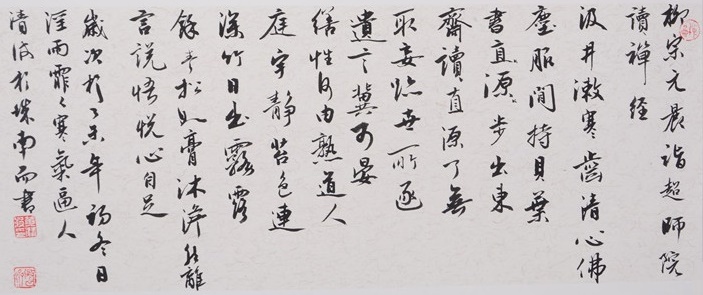 柳宗元晨詣超師院
讀禪經
汲井漱寒齒清心拂
塵服閒持貝葉
書真源步出東
齋讀真源了無
取妄跡世所逐
遺言冀可冥
繕性何由熟道人
庭宇靜苔色連
深竹日出霧露
餘青松如膏沐澹然離
言說悟悅心自足
歲次於未年初冬日
淫雨霏々寒氣逼人
清於珠南而書